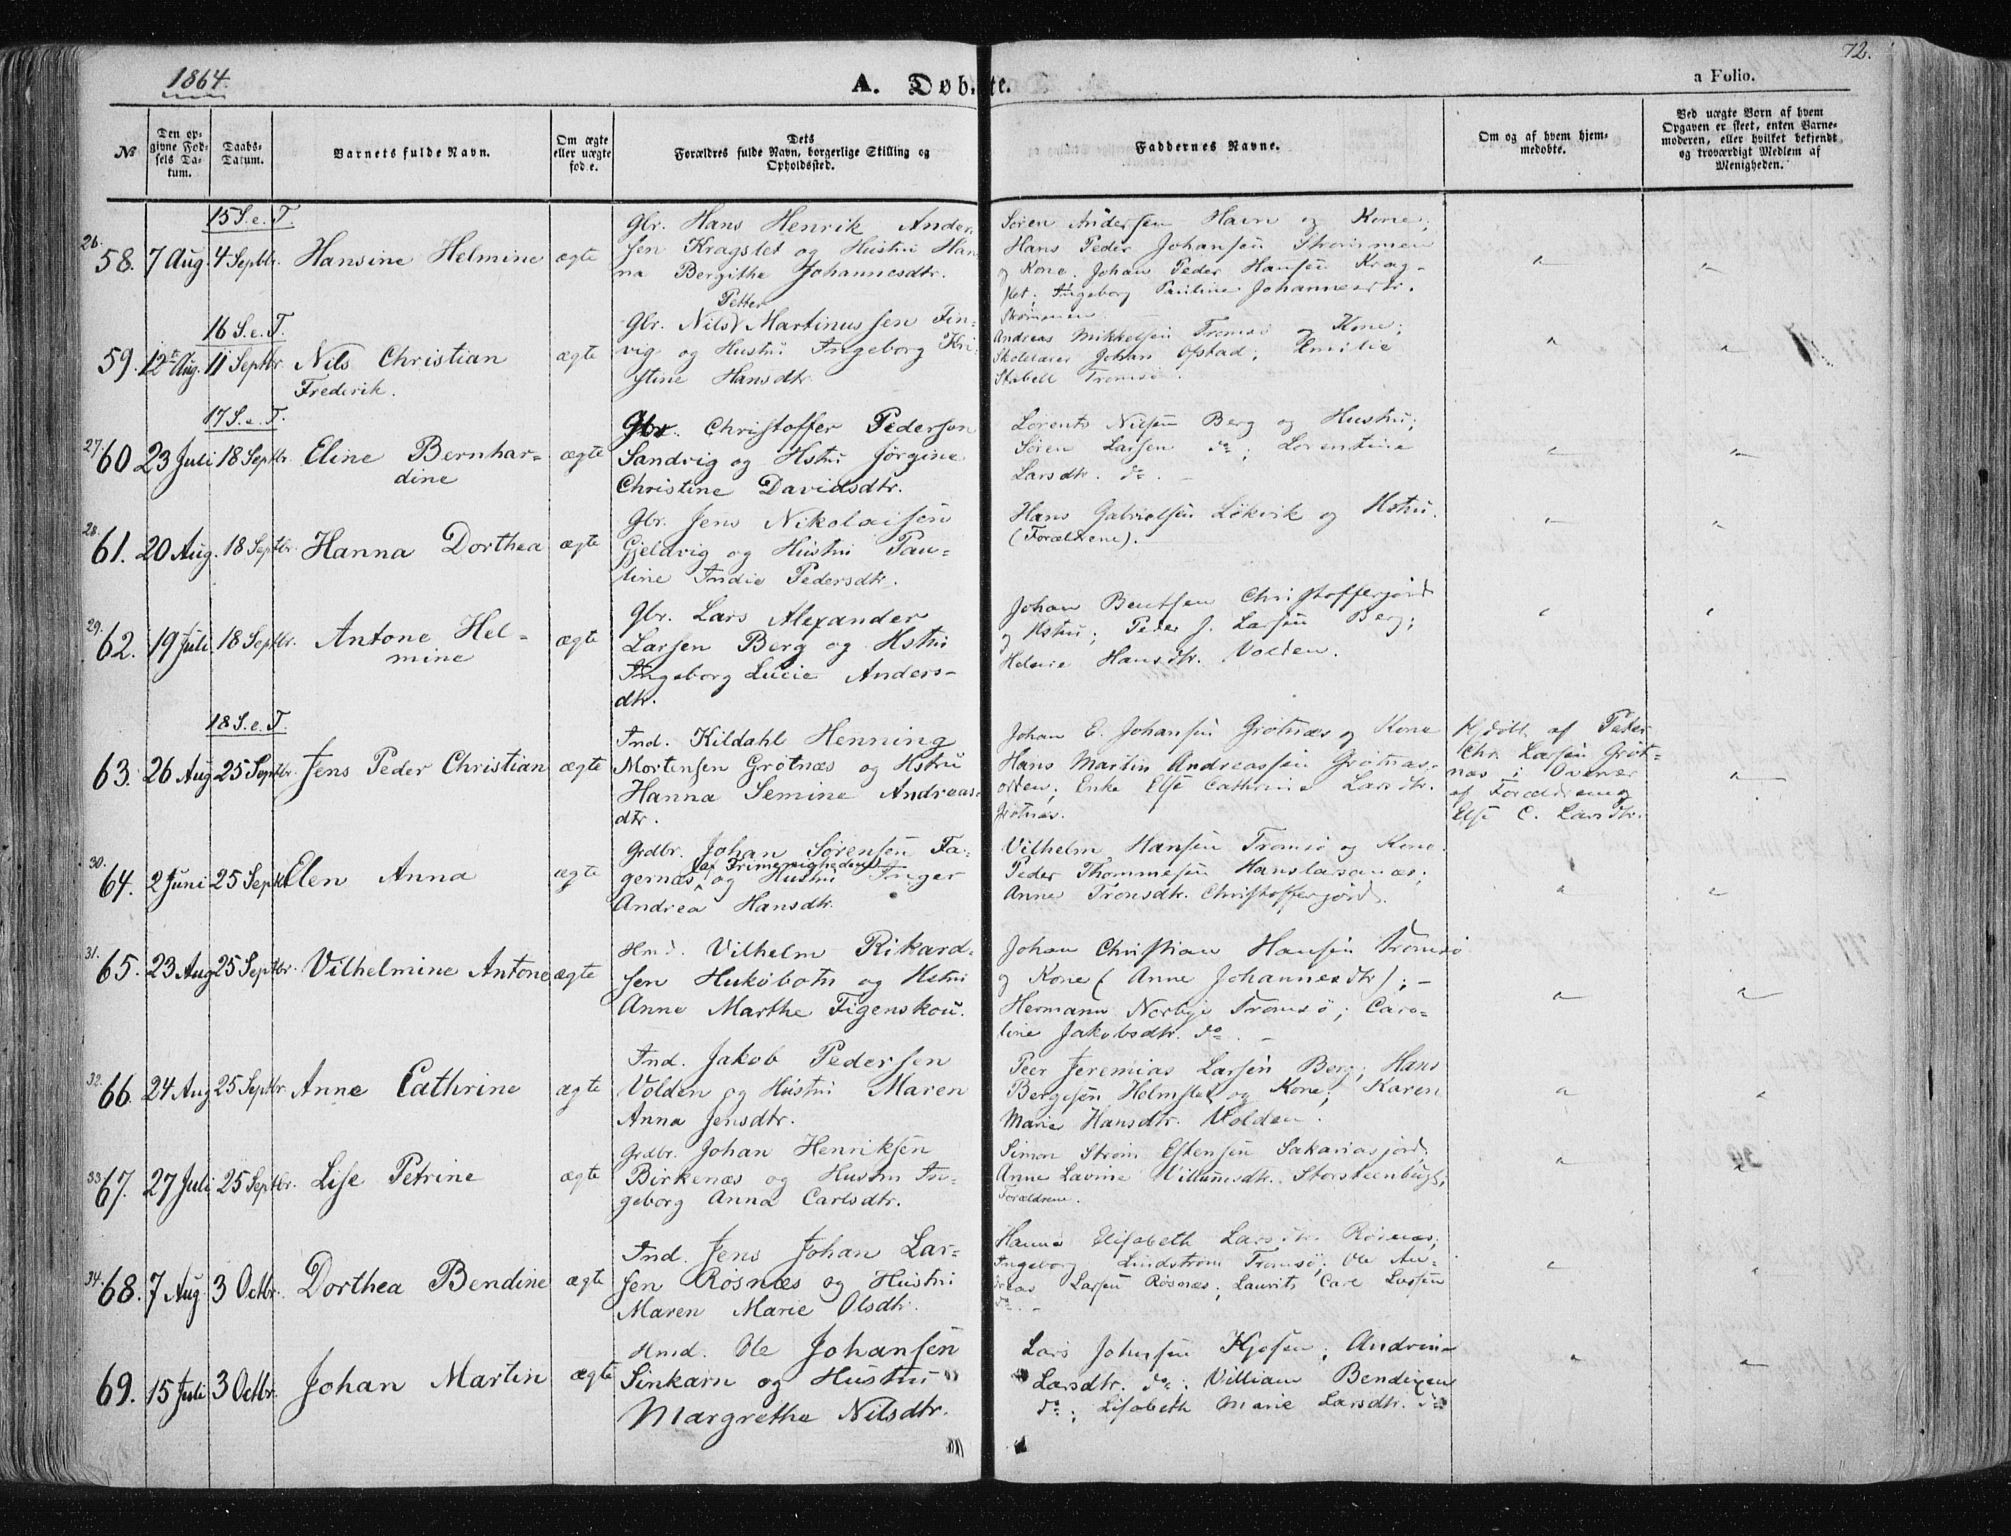 1864.
A. Døbte.
72.
a Folio.
No
Den opgivne Fødsels Datum.
Daabs-Datum.
Barnets fulde Navn.
Om ægte eller uægte føde.
Dets Forældres fulde Navn, borgerlige Stilling og Opholdssted.
Faddernes Navne.
Om og af hvem hjemmedøbte.
Ved uægte Børn af hvem Opgaven er skeet, enten Barnemoderen, eller hvilket bekjendt og troværdigt Medlem af Menigheden.
15 S. e. T.
26.
58. 7 Aug. 4 Septbr. Hansine Helmine ægte
Gbr. Hans Henrik Ander-
sen Kragslet og Hustru Han-
na Bergithe Johannesdtr.
Søren Andersen Havn og Kone;
Hans Peder Johansen Strømmen
og Kone. Johan Peder Hansen Krag-
slet; Ingeborg Pauline Johannesdtr.
16 S. e. T.
59. 12te Aug. 11 Septbr. Nils Christian
Frederik.
ægte
Petter
Gbr. Nils Martinussen Fin-
vig og Hustru Ingeborg Kri-
stine Hansdtr.
Andreas Mikkelsen Tromsø og Kone;
Skolelærer Johan Ofstad; Emilie
Stabell Tromsø.
17 S. e. T.
27.
60 23 Juli 18 Septbr. Eline Bernhar-
dine
ægte
Gbr. Christoffer Pedersen
Sandvig og Hstru Jørgine
Christine Davidsdtr.
Lorents Nilsen Berg og Hustru;
Søren Larsen do; Lorentine
Larsdtr. do. -
28.
61. 20 Aug. 18 Septbr. Hanna Dorthea ægte
Gbr. Jens Nikolaisen
Gjeldvig og Hustru Pau-
line Indie Pedersdtr.
Hans Gabrielsen Løkvik og Hstru.
(Forældrene).
29.
62. 19 Juli 18 Septbr. Antone Hel-
mine
ægte
Gbr. Lars Alexander
Larsen Berg og Hstru
Ingeborg Lucie Anders-
dtr.
Johan Bentsen Christofferjord
og Hstru; Peder J. Larsen Berg;
Helene Hansdtr. Volden.
18 S. e. T.
63. 26 Aug 25 Septbr. Jens Peder Christian ægte
Ind. Kildahl Henning
Mortensen Grøtnæs og Hstru
Hanna Semine Andreas-
dtr.
Johan E. Johansen Grøtnæs og Kone
Hans Martin Andreassen Grøtnæs-
Enke Else Cathrine Larsdtr.
Grøtnæs.
Hjdøbt af Peder
Chr. Larsen Grøt-
næs i Overvær
af Forældrene og
Else C. Larsdtr.
30.
64. 2 Juni 25 Septbr. Elen Anna ægte
Grdbr. Johan Sørensen Fa-
(af Frimenigheden)
gernæs, og Hustru Inger
Andrea Hansdtr.
Vilhelm Hansen Tromsø og Kone.
Peder Thommesen Hanslarsanæs;
Anne Tronsdtr. Christofferjord.
31.
65. 23 Aug 25 Septbr. Vilhelmine Antone ægte
Hmd. Vilhelm Rikard-
sen Hukøbotn og Hstru
Anne Marthe Figenskou.
Johan Christian Hansen Tromsø
og Kone (Anne Johannesdtr); -
Hermann Norbye Tromsø; Caro-
line Jakobsdtr. do. -
32.
66. 24 Aug 25 Septbr. Anne Cathrine ægte
Ind. Jakob Pedersen
Volden og Hustru Maren
Anna Jensdtr.
Peer Jeremias Larsen Berg; Hans
Bergesen Helmslet og Kone; Karen
Marie Hansdtr. Volden.
33
67. 27 Juli 25 Septbr. Lise Petrine ægte
Grdbr. Johan Henriksen
Birkenæs og Hustru In-
geborg Anna Carlsdtr.
Simon Strøm Estensen Sakariasjord;
Anne Lavine Villumsdtr. Storsteenbugt;
Forældrene.
34.
68. 7 Aug 3 Octbr. Dorthea Bendine ægte
Ind. Jens Johan Lar-
sen Røsnæs og Hustru
Maren Marie Olsdtr.
Hanna Elisabeth Larsdtr. Røsnæs;
Ingeborg Lindstrøm Tromsø; Ole An-
dreas Larsen Røsnæs; Laurits Carl Larsen
do. -
69. 15 Juli 3 Octbr. Johan Martin ægte
Hmd. Ole Johansen
Sinkarn og Hustru
Margrethe Nilsdtr.
Lars Johnsen Kjosen; Andrine
Larsdtr. do; Villiam Bendixen
do; Lisabeth Marie Larsdtr. do